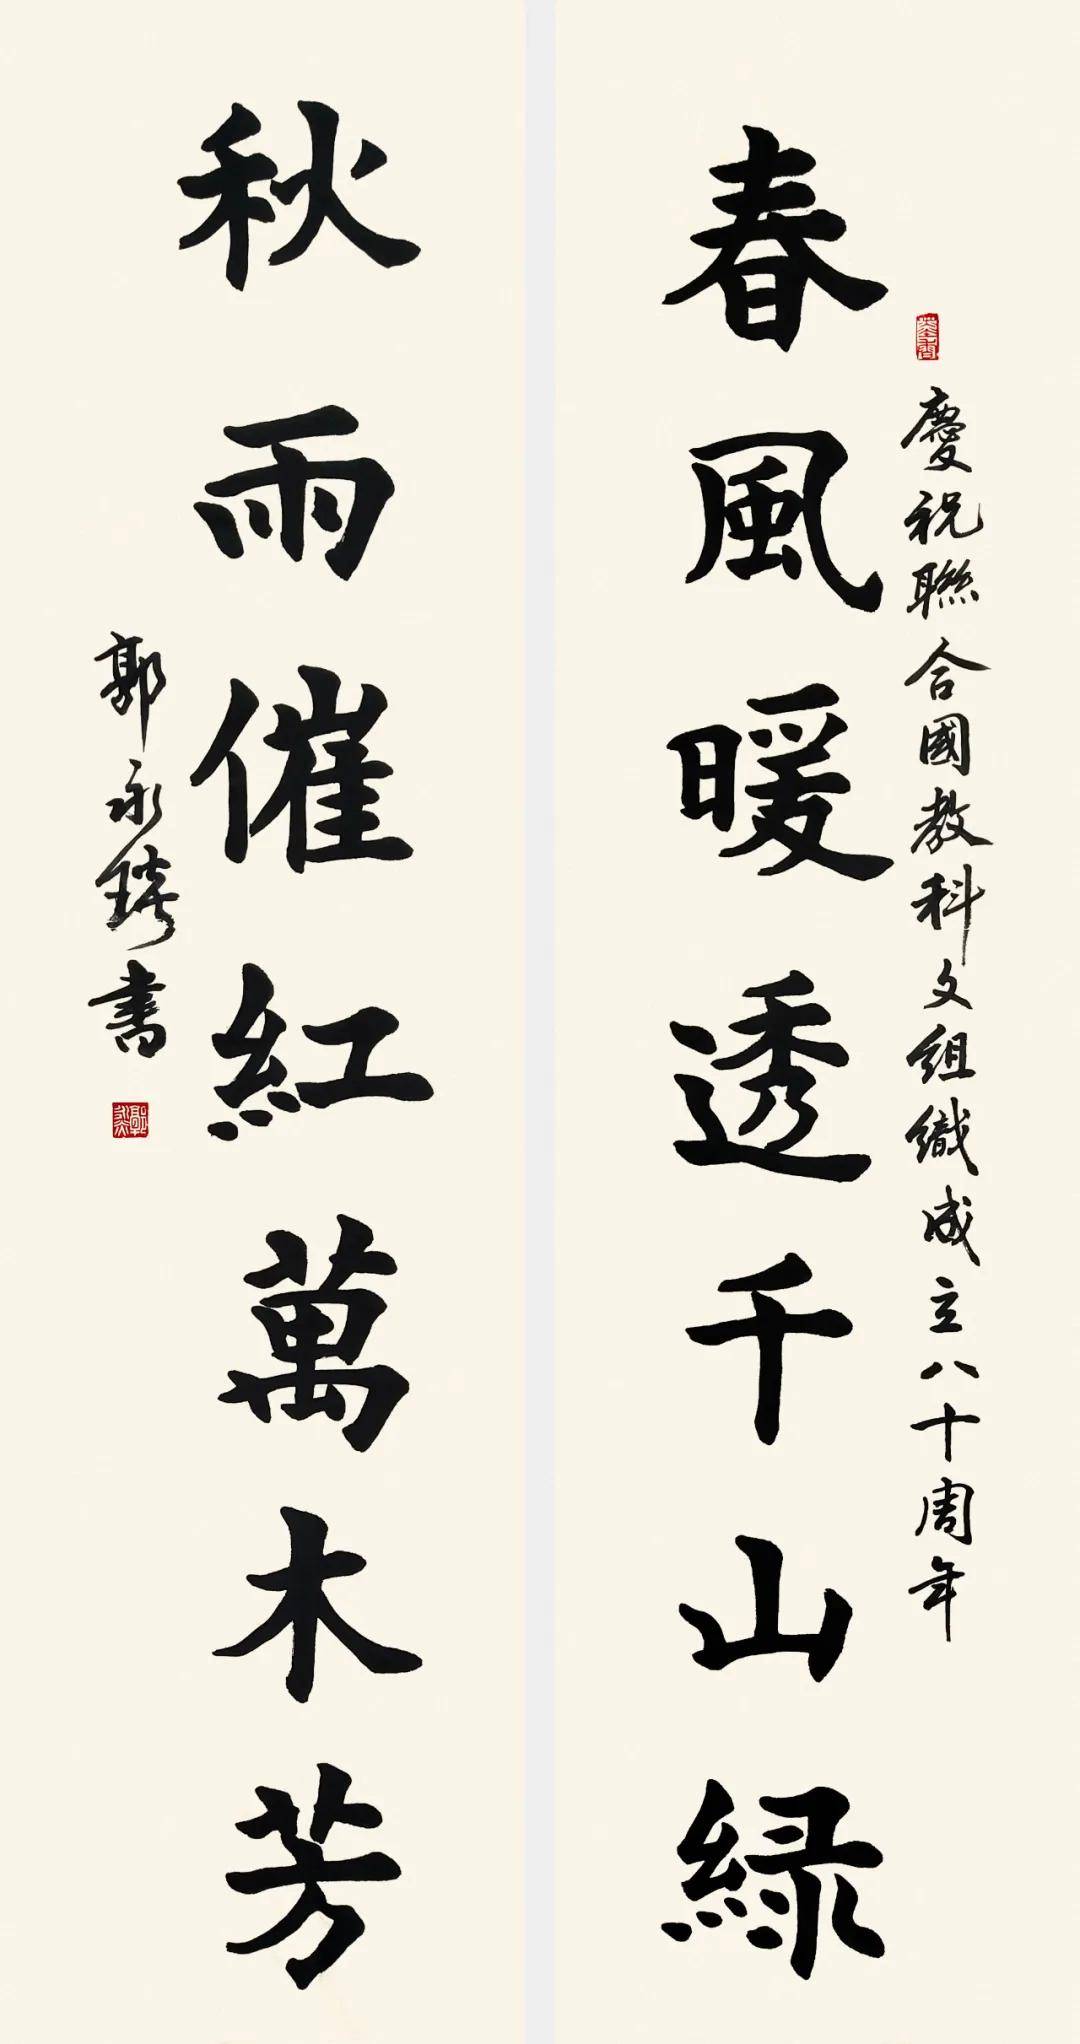 春風暖透千山緑
慶祝聯合國教科文組織成立八十周年
秋雨催紅萬木芳
郭永琰書